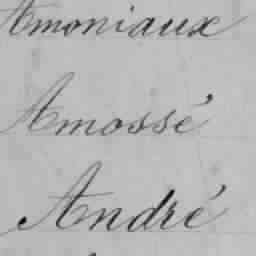 Amoniaux
Amossé
André